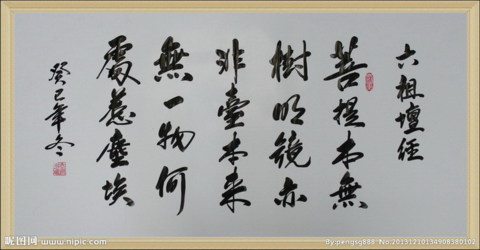 六祖壇經
菩提本無
樹明鏡亦
非臺本来
無一物何
處惹塵埃
癸巳年冬
昵图网 www.nipic.com
By:jiangsg888 No:20131219134908380102